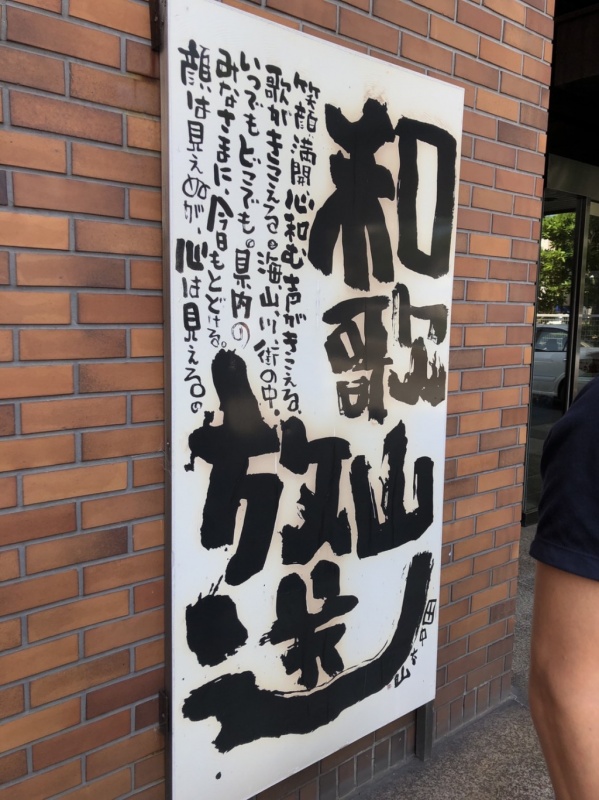 和歌山
放送
笑顔満開心和む声がきこえる、
歌がきこえる。海、山、川、街の中。
いつでもどこでも。県内の
みなさまに、今日もとどける。
顔は見えぬが、心は見える。
田中